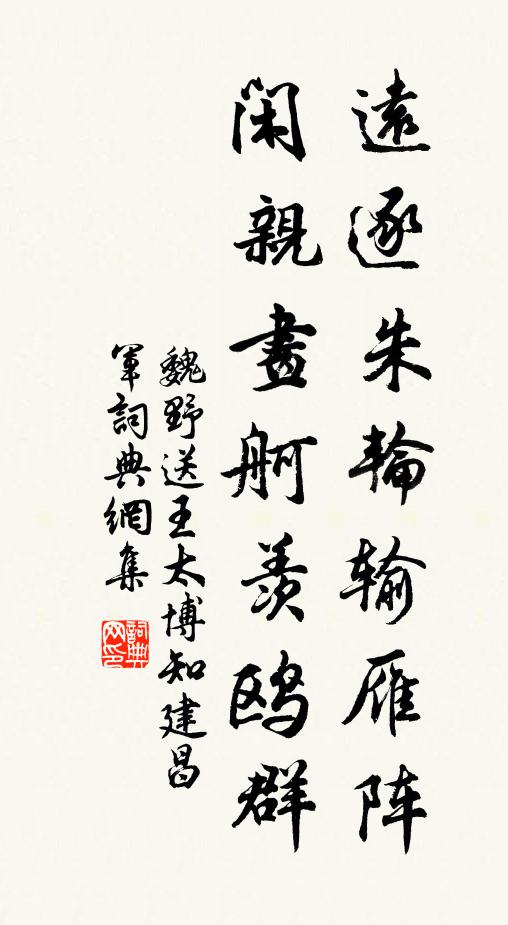 遠逐朱輪輸雁阵
闲親畫舸羨鸥群
魏野送王太博知建昌
軍詞典網集
詞典网印